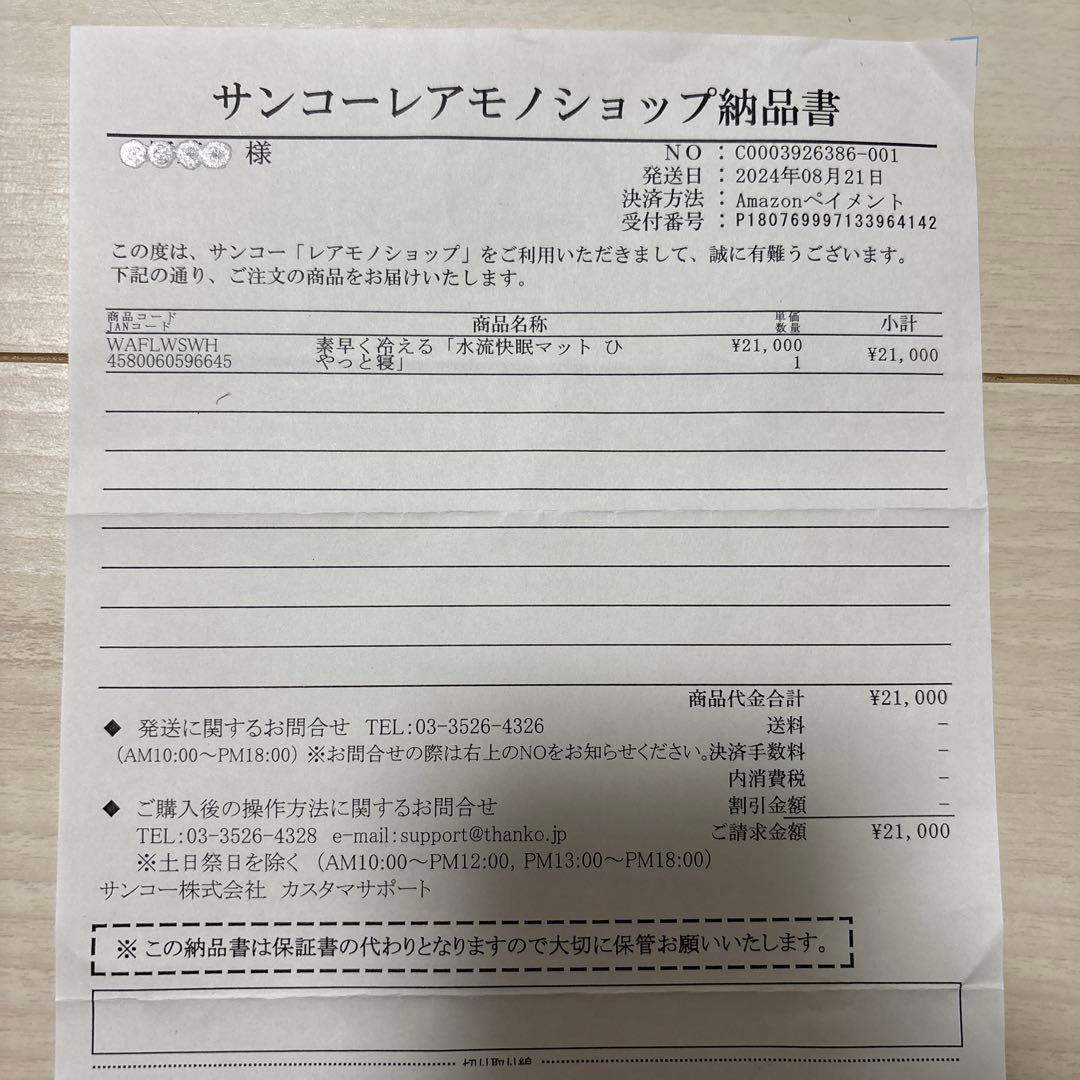 サンコーレアモノショップ納品書
様
NO : C0003926386-001
発送日 : 2024年08月21日
決済方法 : Amazonペイメント
受付番号 : P180769997133964142
この度は、サンコー「レアモノショップ」をご利用いただきまして、誠に有難うございます。
下記の通り、ご注文の商品をお届けいたします。
商品コード
JANコード
商品名称
単価
数量
小計
WAFLWSWH
4580060596645
素早く冷える「水流快眠マット ひ
やっと寝」
¥21,000
1
¥21,000
商品代金合計 ¥21,000
◆ 発送に関するお問合せ TEL:03-3526-4326
送料 -
(AM10:00～PM18:00) ※お問合せの際は右上のNOをお知らせください。
決済手数料 -
内消費税 -
◆ ご購入後の操作方法に関するお問合せ
割引金額 -
TEL:03-3526-4328 e-mail:support@thanko.jp
ご請求金額 ¥21,000
※土日祭日を除く (AM10:00～PM12:00, PM13:00～PM18:00)
サンコー株式会社 カスタマサポート
※ この納品書は保証書の代わりとなりますので大切に保管お願いいたします。
切り取り線